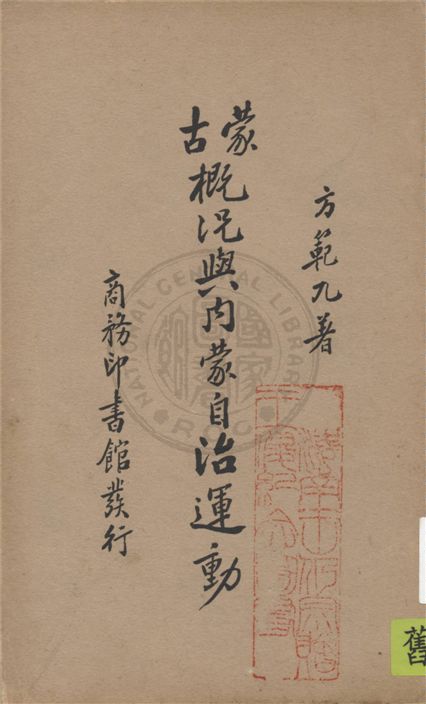 方範九著
蒙古概況與內蒙自治運動
商務印書館發行
NATIONAL CENTRAL LIBRARY
國家圖書館
R.O.C.
舊